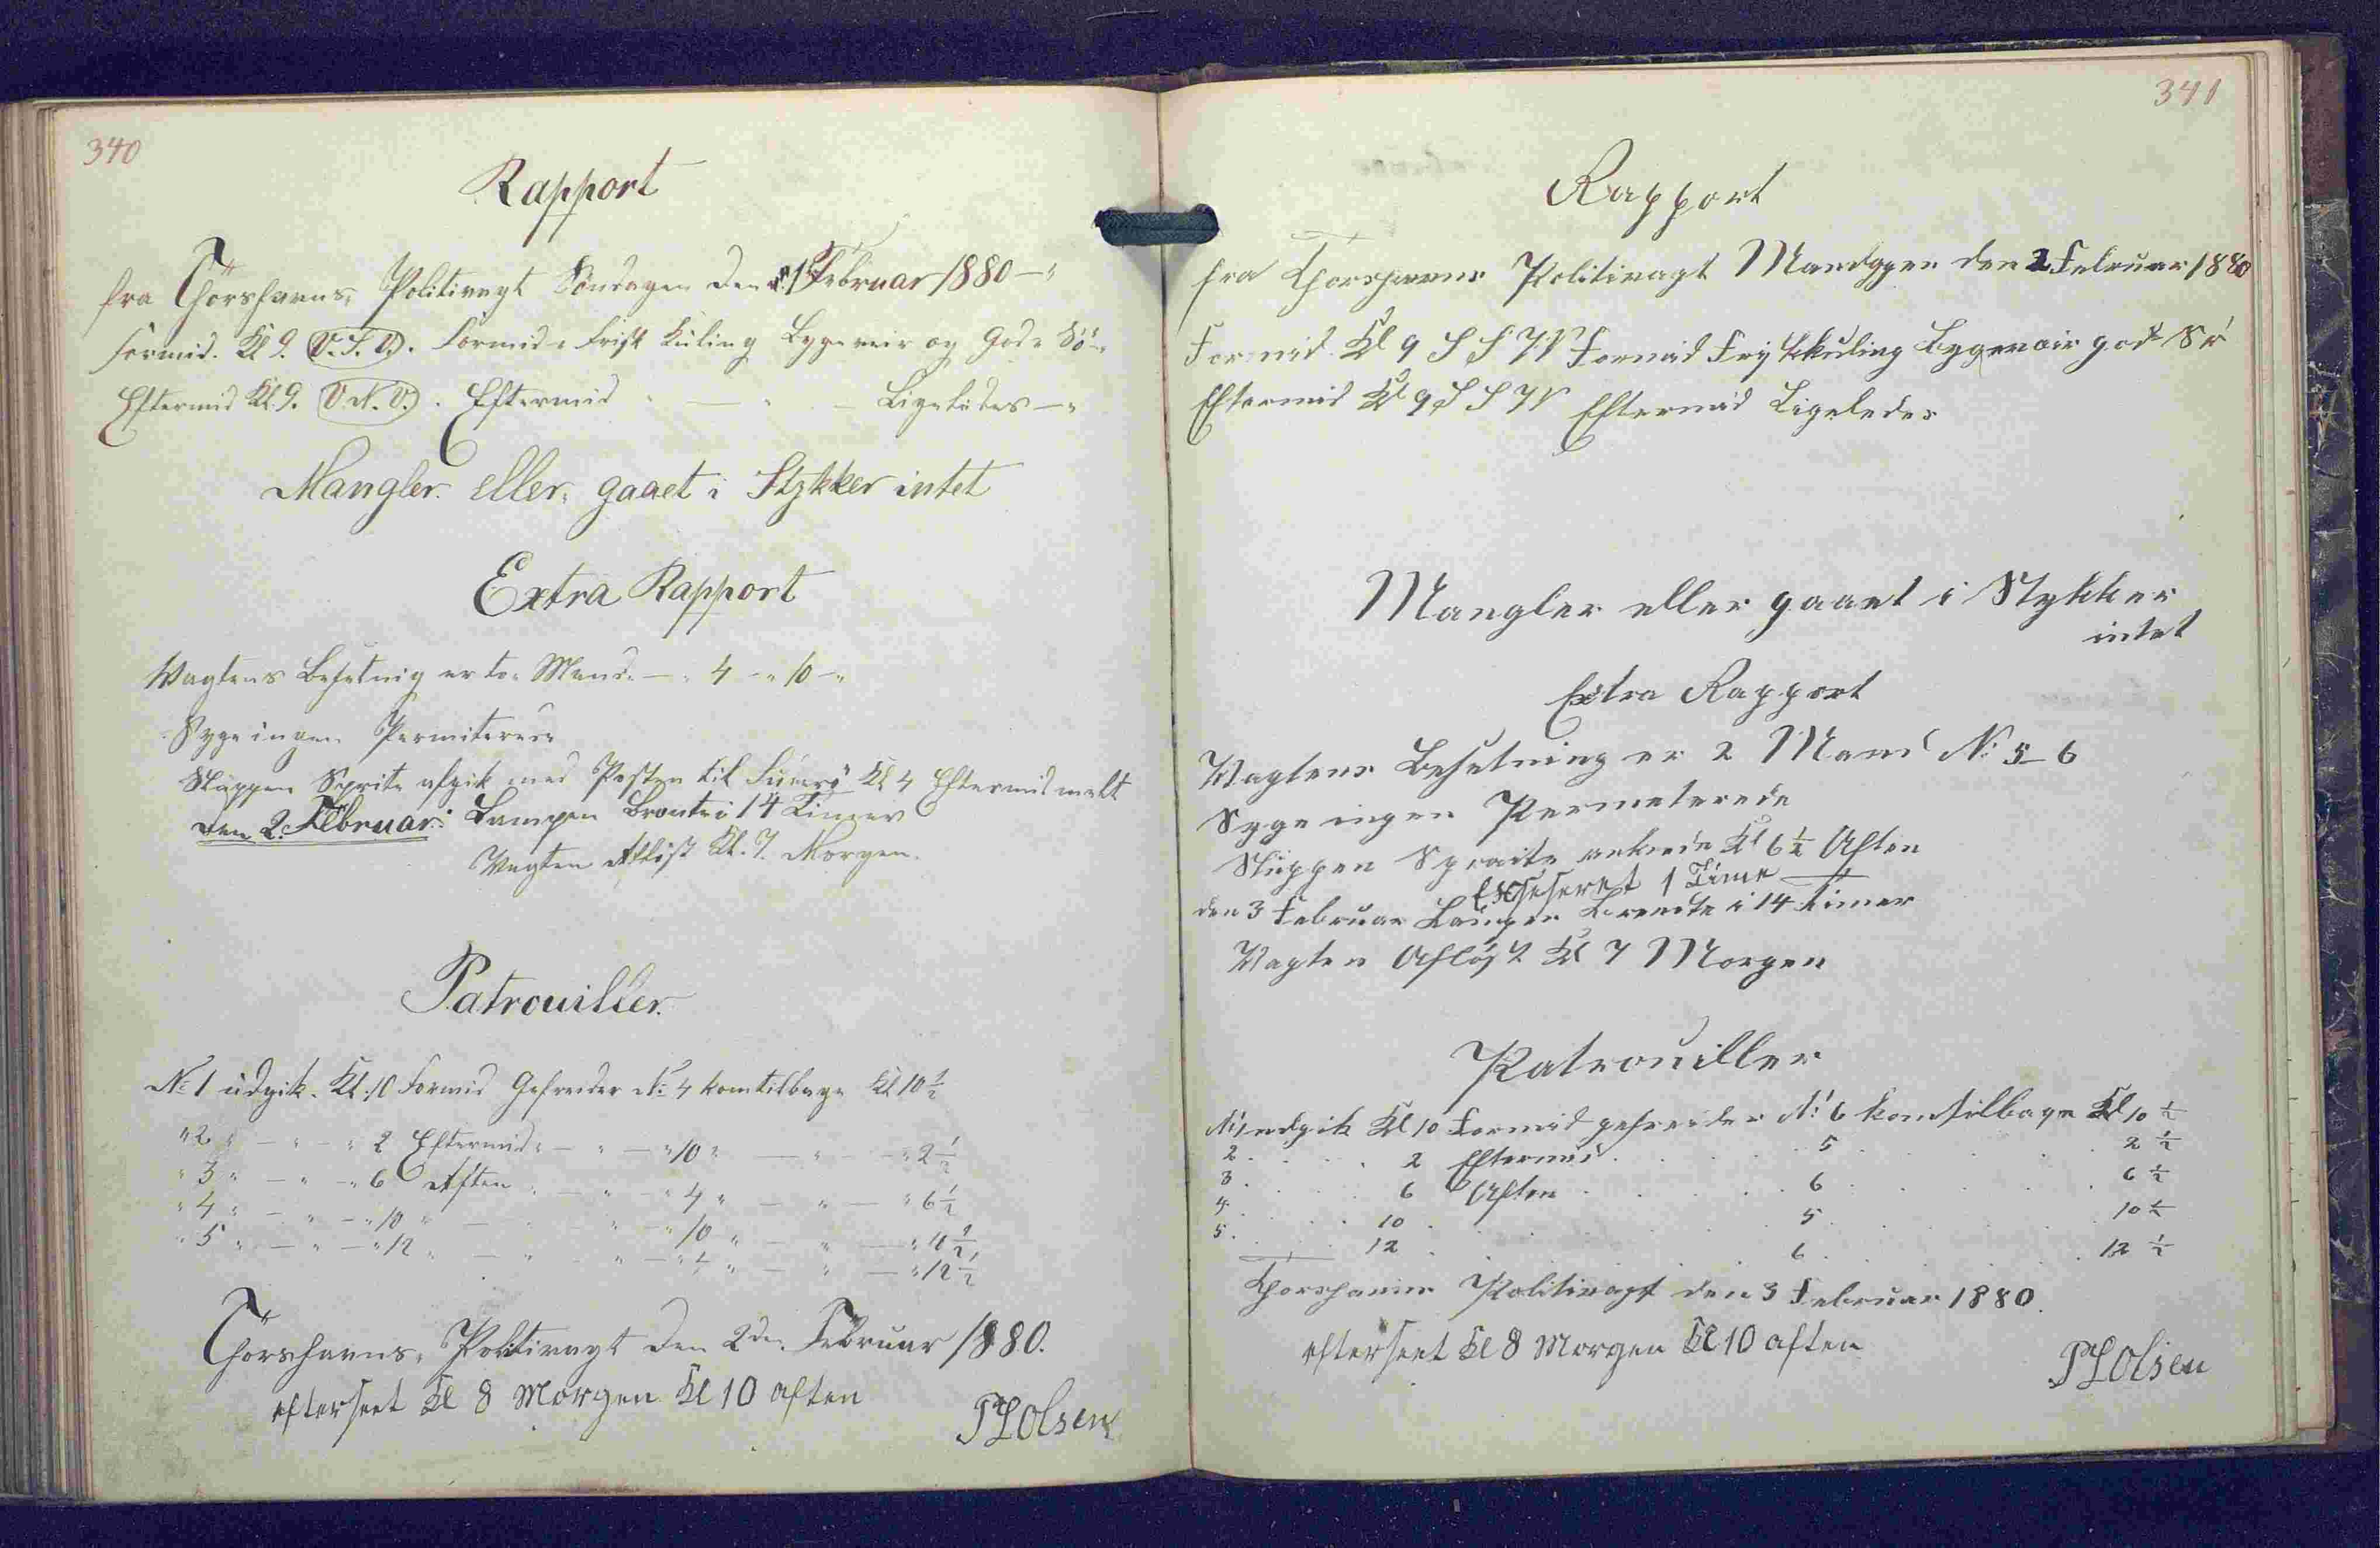 340
Rapport
fra Thorshavns, Politivagt Søndagen den 1 Februar 1880 — "
Formid. Kl 9. V.S.V. Formid. Frisk Kuling Bygeveir og God Sö
Eftermid Kl. 9. V.N.V. Eftermid " — " — Ligeledes — "
Mangler eller gaaet i Stykker intet
Extra Rapport
Vagtens Besetnig er to Mand. — " 4 — " 10 — "
Syge ingen Permiterede
Sluppen Sprite afgik med Posten til Kl 4 Eftermid
den 2. Februar: Lampen Brænte i 14 Timer
Vagten Afløst Kl. 7. Morgen.
Patrouiller.
No 1 udgik. Kl. 10 Formid Gefreider No 4 kom tilbage Kl 10 ½
" 2 " — " — " 2 Eftermid " — " — " 10 " — " — " 2 ½
" 3 " — " — " 6 Aften " — " — " 4 " — " — " 6 ½
" 4 " — " — " 10 " — " — " 10 " — " — " 10 ½
" 5 " — " — " 12 " — " — " 4 " — " — " 12 ½
Thorshavns, Politivagt den 2den Februar 1880.
efterseet Kl 8 Morgen Kl 10 aften
Olsen
341
Rapport
fra Thorshavns Politivagt Mandagen den 2 Februar 1880
Formid Kl 9 S S W Formid Frisk kuling Bygevair god Sö
Eftermid Kl 9 S S W Eftermid Ligeledes
Mangler eller gaaet i Stykker
intet
Extra Rapport
Vagtens Besetning er 2 Mand No 5-6
Syge ingen Permeterede
Sluppen Spraite ankrede Kl 6 ½ Aften
Exseseret 1 Time
den 3 Februar Lampen Brendte i 14 timer
Vagten Afløst Kl 7 Morgen
Patrouiller
No 1 udgik Kl 10 Formid gefreider No 6 kom tilbage Kl 10 ½
2 . . . . 2 Eftermid . . . . 5 . . . . 2 ½
3 . . . . 6 Aften . . . . 6 . . . . 6 ½
4 . . . . 10 . . . . 5 . . . . 10 ½
5 . . . . 12 . . . . 6 . . . . 12 ½
Thorshavns Politivagt den 3 Februar 1880.
efterseet Kl 8 Morgen Kl 10 aften
Olsen